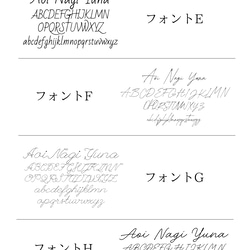 Aoi Nagi Yuna
ABCDEFGHIJKLMN
OPQRSTUVWXYZ
abcdefghijklmnopqrstuvwxyz
フォントE
Aoi Nagi Yuna
ABCDEFGHIJKLMN
OPQRSTUVWXYZ
フォントF
Aoi Nagi Yuna
ABCDEFGHIJKLMN
OPQRSTUVWXYZ
abcdefghijklmn
opqrstuvwxyz
フォントG
Aoi Nagi Yuna
ABCDEFGHIJKLMN
フォントH